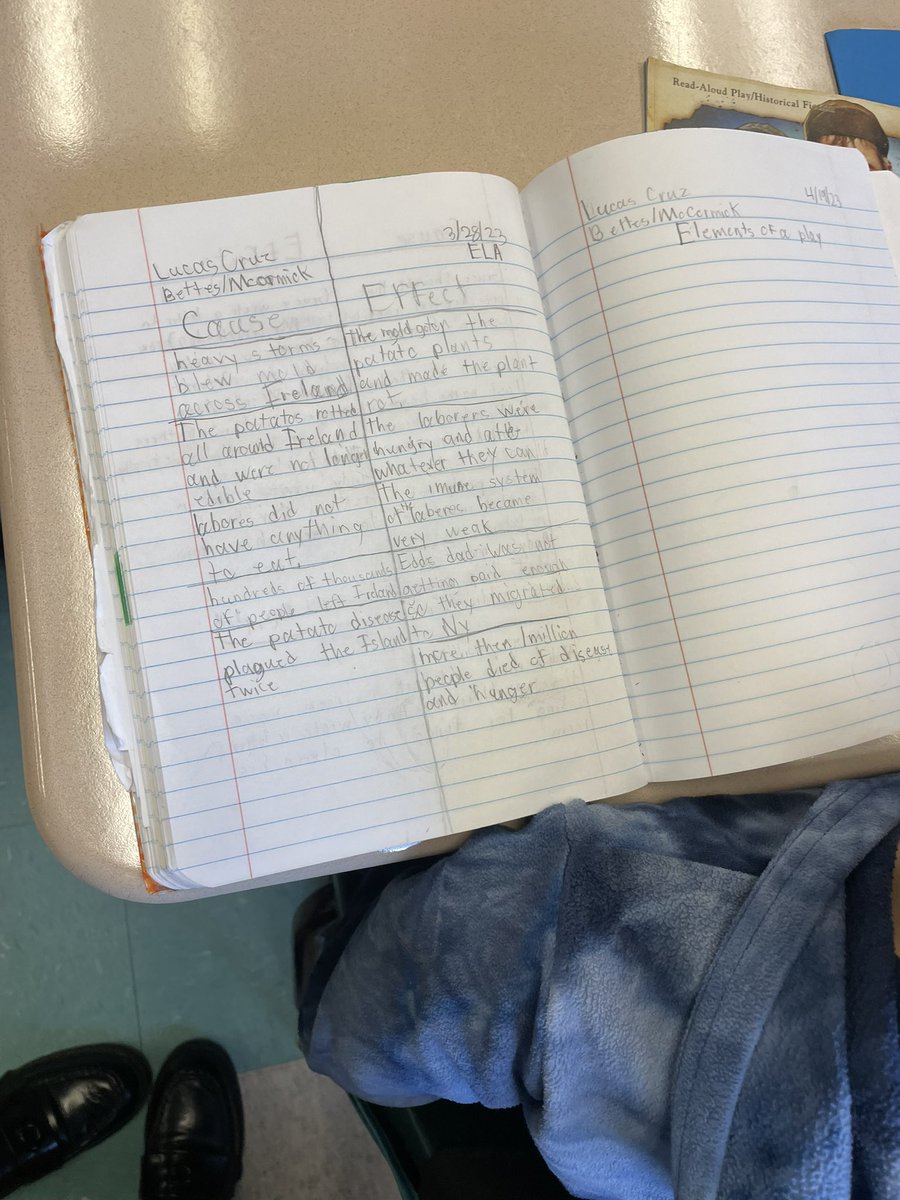 Read-Aloud Play/Historical Fi
Lucas Cruz
3/28/23
Bettes/Mccormick
ELA
Cause
heavy storms
blew mold
across Ireland
The patatos rotted
all around Ireland
and were not longer
edible
labores did not
have anything
to eat.
hundreds of thousands
of people left Ireland
The patato disease
plagued the Island
twice
Effect
the mold got on the
patato plants
and made the plant
rot.
the laborers were
hungry and ate
whatever they can
The imune system
of the laberes became
very weak
Edds dad was not
getting paid enough
So they migrated
to Ny
more then 1 million
people died of disease
and hunger
Lucas Cruz
4/19/23
Bettes/McCormick
Elements of a play